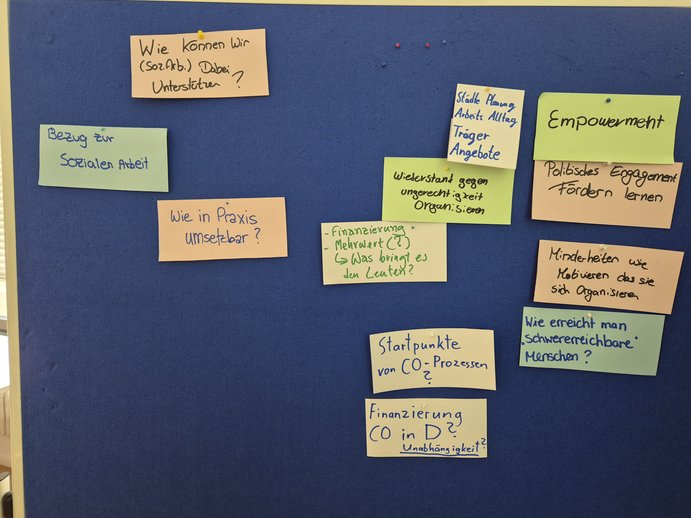 Wie können Wir
(Soz.Arb.) Dabei
Unterstützen?
Bezug zur
Sozialen Arbeit
Wie in Praxis
umsetzbar?
Städte Planung
Arbeits Alltag
Träger
Angebote
Wiederstand gegen
ungerechtigkeit
Organisieren
- Finanzierung
- Mehrwert (?)
↳ Was bringt es
den Leuten?
Empowerment
Politisches Engagement
Fördern lernen
Minderheiten wie
Motivieren das sie
sich Organisieren
Wie erreicht man
"schwererreichbare"
Menschen?
Startpunkte
von CO-Prozessen
?
Finanzierung
CO in D?
Unabhängigkeit?